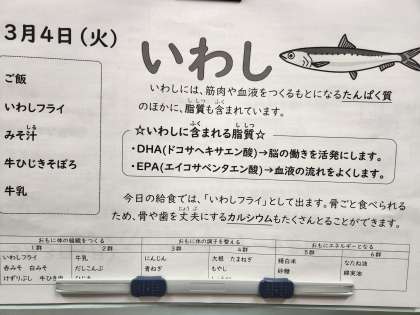 3月4日（火）
いわし
ご飯
いわしフライ
みそ汁
牛ひじきそぼろ
牛乳
いわしには、筋肉や血液をつくるもとになるたんぱく質
のほかに、脂質も含まれています。
☆いわしに含まれる脂質☆
・DHA(ドコサヘキサエン酸)→脳の働きを活発にします。
・EPA(エイコサペンタエン酸)→血液の流れをよくします。
今日の給食では、「いわしフライ」として出ます。骨ごと食べられる
ため、骨や歯を丈夫にするカルシウムもたくさんとることができます。
おもに体の組織をつくる おもに体の調子を整える おもにエネルギーとなる
1群 2群 3群 4群 5群 6群
いわしフライ 牛乳 にんじん 大根 たまねぎ 精白米 なたね油
赤みそ 白みそ だしこんぶ 青ねぎ もやし 砂糖 綿実油
けずりぶし 牛ひき肉 ひじき